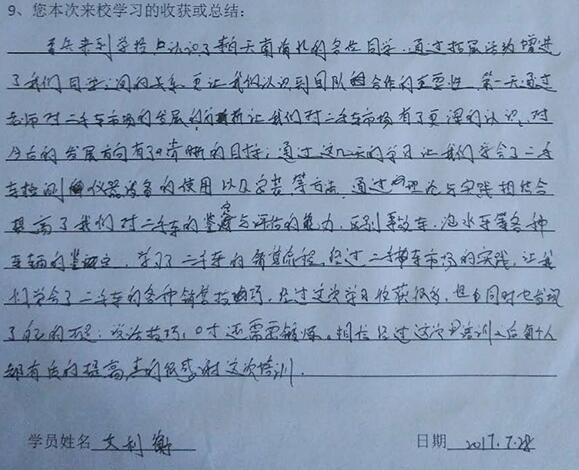 9、您本次来校学习的收获或总结:
首先来到学校认识了来自天南海北的各位同学,通过拓展活动增进
了我们同学之间的关系,更让我们认识到团队合作的重要性,第一天通过
老师对二手车市场的发展的分析让我们对二手车市场有了更深的认识,对
今后的发展方向有了清晰的目标;通过这几天的学习让我们学会了二手
车检测仪器设备的使用以及安装等方法,通过理论与实践相结合
提高了我们对二手车的鉴定与评估的能力,区别事故车,泡水车等各种
车辆的鉴定,学习了二手车的销售流程,经过二手车市场的实践,让我
们学会了二手车的各种销售技巧,经过这次学习收获很多,但也同时也发现
了自己的不足:说话技巧,口才还需要锻炼。相信经过这次培训之后每个人
都有质的提高,真的很感谢这次培训.
学员姓名 文利衡 日期 2017.7.28